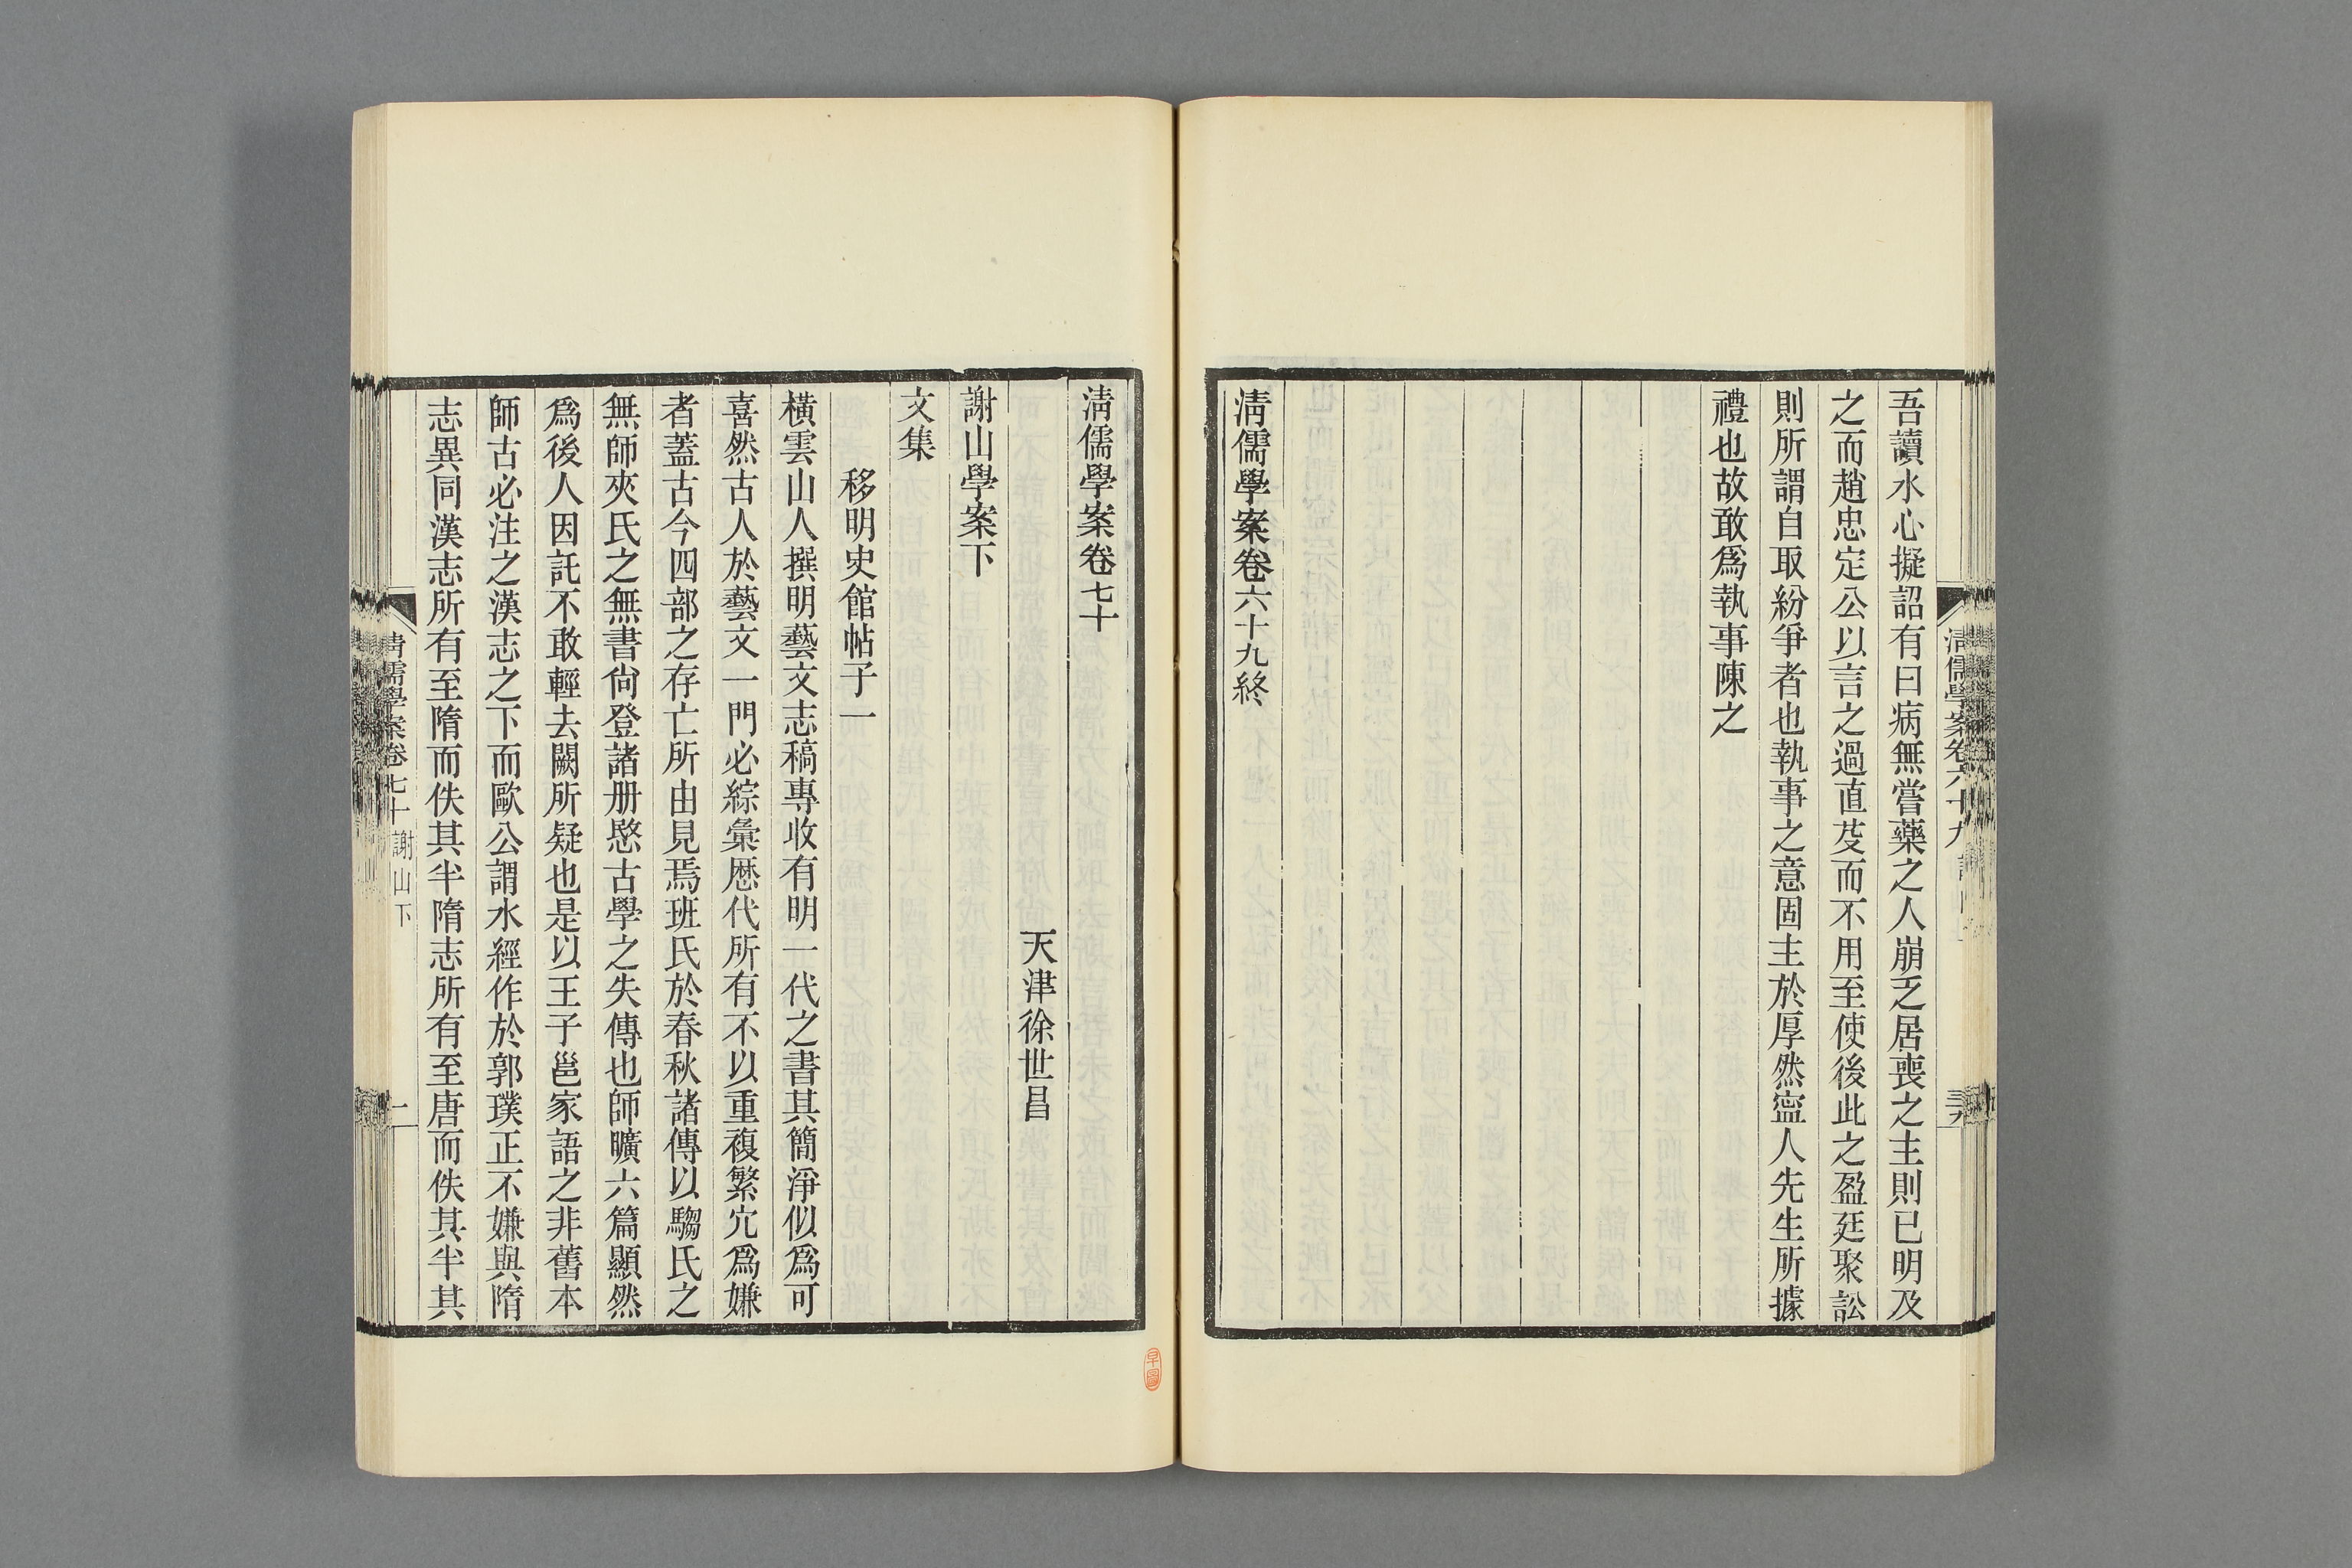 吾讀水心擬詔有曰病無嘗藥之人崩乏居喪之主則已明及
之而趙忠定公以言之過直芟而不用至使後此之盈廷聚訟
則所謂自取紛爭者也執事之意固主於厚然寍人先生所據
禮也故敢爲執事陳之
清儒學案卷六十九終
清儒學案卷六十九
清儒學案卷七十
天津徐世昌
謝山學案下
文集
移明史館帖子一
橫雲山人撰明藝文志稿專收有明一代之書其簡淨似爲可
喜然古人於藝文一門必綜彙歷代所有不以重複繁宂爲嫌
者蓋古今四部之存亡所由見焉班氏於春秋諸傳以騶氏之
無師夾氏之無書尙登諸册愍古學之失傳也師曠六篇顯然
爲後人因託不敢輕去闕所疑也是以王子邕家語之非舊本
師古必注之漢志之下而歐公謂水經作於郭璞正不嫌與隋
志異同漢志所有至隋而佚其半隋志所有至唐而佚其半其
清儒學案卷七十 謝山下